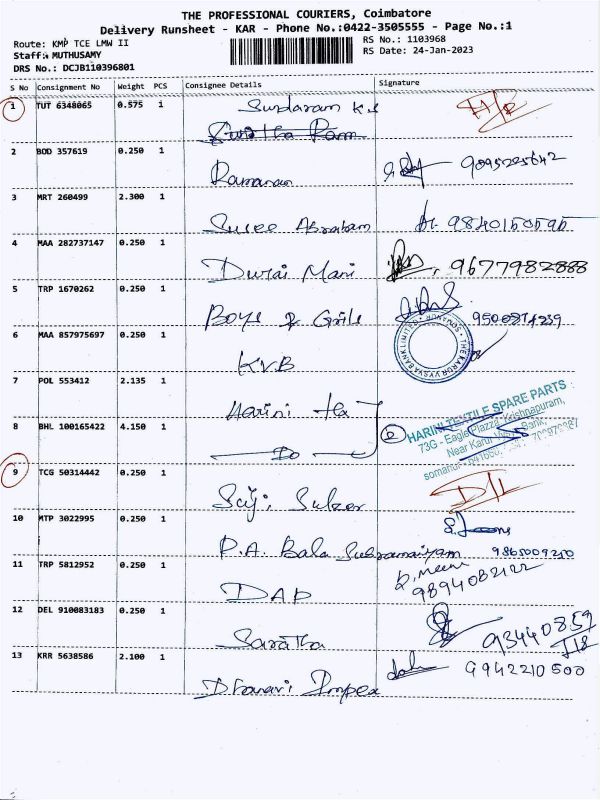 THE PROFESSIONAL COURIERS, Coimbatore
Delivery Runsheet - KAR - Phone No.:0422-3505555 - Page No.:1
Route: KMP TCE LMW II
Staff: MUTHUSAMY
DRS No.: DCJB110396801
RS No.: 1103968
RS Date: 24-Jan-2023
S No Consignment No Weight PCS Consignee Details Signature
1 TUT 6348065 0.575 1 Sundaram K.S
2 BOD 357619 0.250 1 Ramanan 9095225642
3 MRT 260499 2.300 1 Susee Abraham 9840150595
4 MAA 282737147 0.250 1 Durai Mani 9677982888
5 TRP 1670262 0.250 1 Boys & Girls
6 MAA 857975697 0.250 1 KVB
THE KARUR VYSYA BANK LIMITED SOMANUR
7 POL 553412 2.135 1 Harini
8 BHL 100165422 4.150 1 Do
HARINI TEXTILE SPARE PARTS
73G - Eagle Plazza, Krishnapuram,
Near Karur Vysya Bank,
9 TCG 50314442 0.250 1 Saji Sulzer D/L
10 MTP 3022995 0.250 1 P.A. Bala Subramaniyam 9865009210
11 TRP 5812952 0.250 1 DAP 9894082122
12 DEL 910083183 0.250 1 Saratha 93440859
13 KRR 5638586 2.100 1 Dhanavi Impex 9942210500